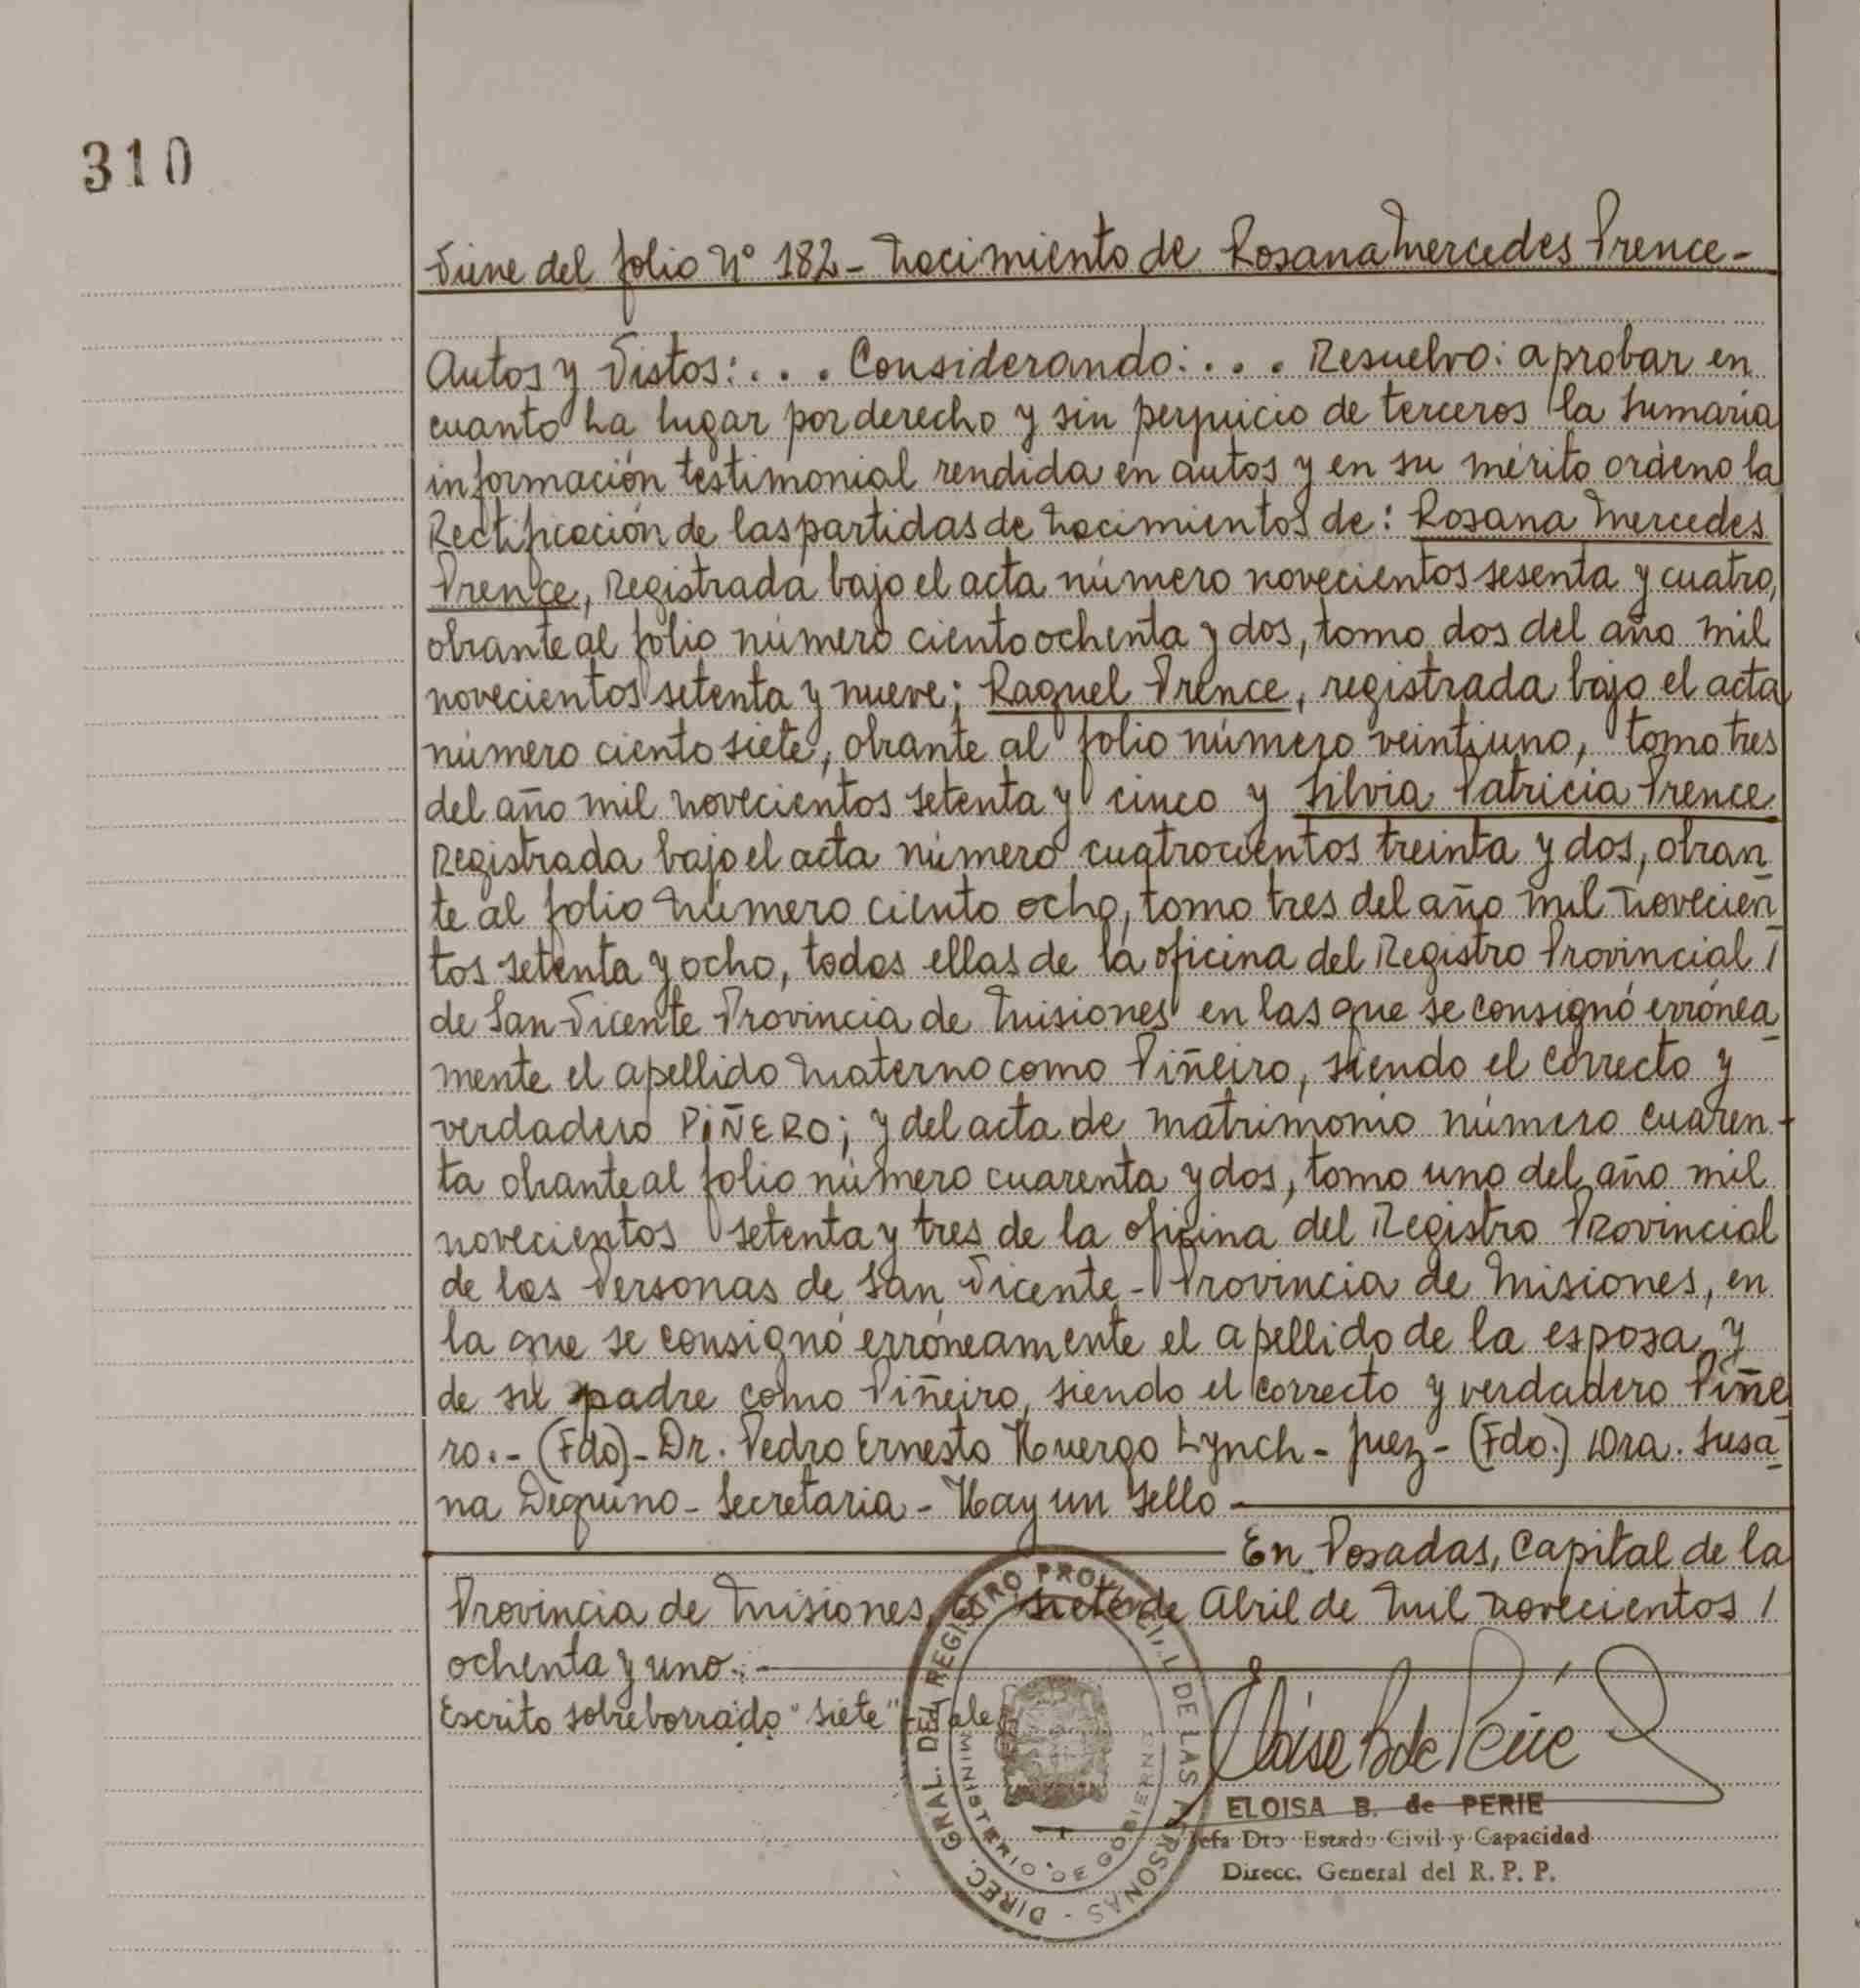 310
Viene del folio Nº 182 - Nacimiento de Rosana Mercedes Prence -
Autos y Vistos: . . . Considerando: . . . Resuelvo: aprobar en
cuanto ha lugar por derecho y sin perjuicio de terceros la sumaria
información testimonial rendida en autos y en su mérito ordeno la
Rectificación de las partidas de Nacimientos de: Rosana Mercedes
Prence, Registrada bajo el acta número novecientos sesenta y cuatro,
obrante al folio número ciento ochenta y dos, tomo dos del año mil
novecientos setenta y nueve; Raquel Prence, registrada bajo el acta
número ciento siete, obrante al folio número veintiuno, tomo tres
del año mil novecientos setenta y cinco y Silvia Patricia Prence
Registrada bajo el acta número cuatrocientos treinta y dos, obran
te al folio número ciento ocho, tomo tres del año mil novecien
tos setenta y ocho, todas ellas de la oficina del Registro Provincial /
de San Vicente Provincia de Misiones en las que se consignó errónea
mente el apellido Materno como Piñeiro, siendo el correcto y
verdadero PIÑERO; y del acta de matrimonio número cuaren-
ta obrante al folio número cuarenta y dos, tomo uno del año mil
novecientos setenta y tres de la oficina del Registro Provincial
de las Personas de San Vicente - Provincia de Misiones, en
la que se consignó erróneamente el apellido de la esposa y
de su padre como Piñeiro, siendo el correcto y verdadero Piñe
ro.- (Fdo)- Dr. Pedro Ernesto Huergo Lynch - Juez - (Fdo.) Dra. Susa
na Dequino - Secretaria - Hay un Sello -
En Posadas, Capital de la
Provincia de Misiones, a siete de Abril de Mil novecientos /
ochenta y uno.-
Escrito sobreborrado "siete" Vale
DIREC. GRAL. DEL REGISTRO PROVINCIAL DE LAS PERSONAS -
MINISTERIO DE GOBIERNO
Eloisa B de Perié
ELOISA B. de PERIE
Jefa Dto Estado Civil y Capacidad
Direcc. General del R. P. P.